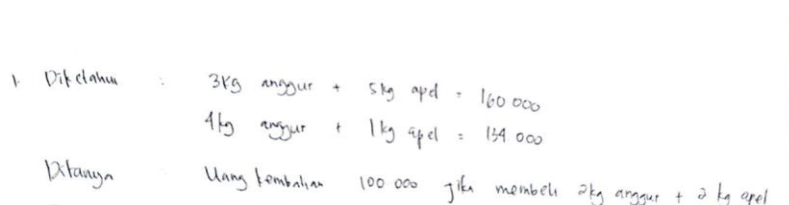 1. Diketahui : 3kg anggur + 5kg apel = 160 000
4kg anggur + 1kg apel = 134 000
Ditanya Uang kembalian 100 000 jika membeli 2kg anggur + 2 kg apel